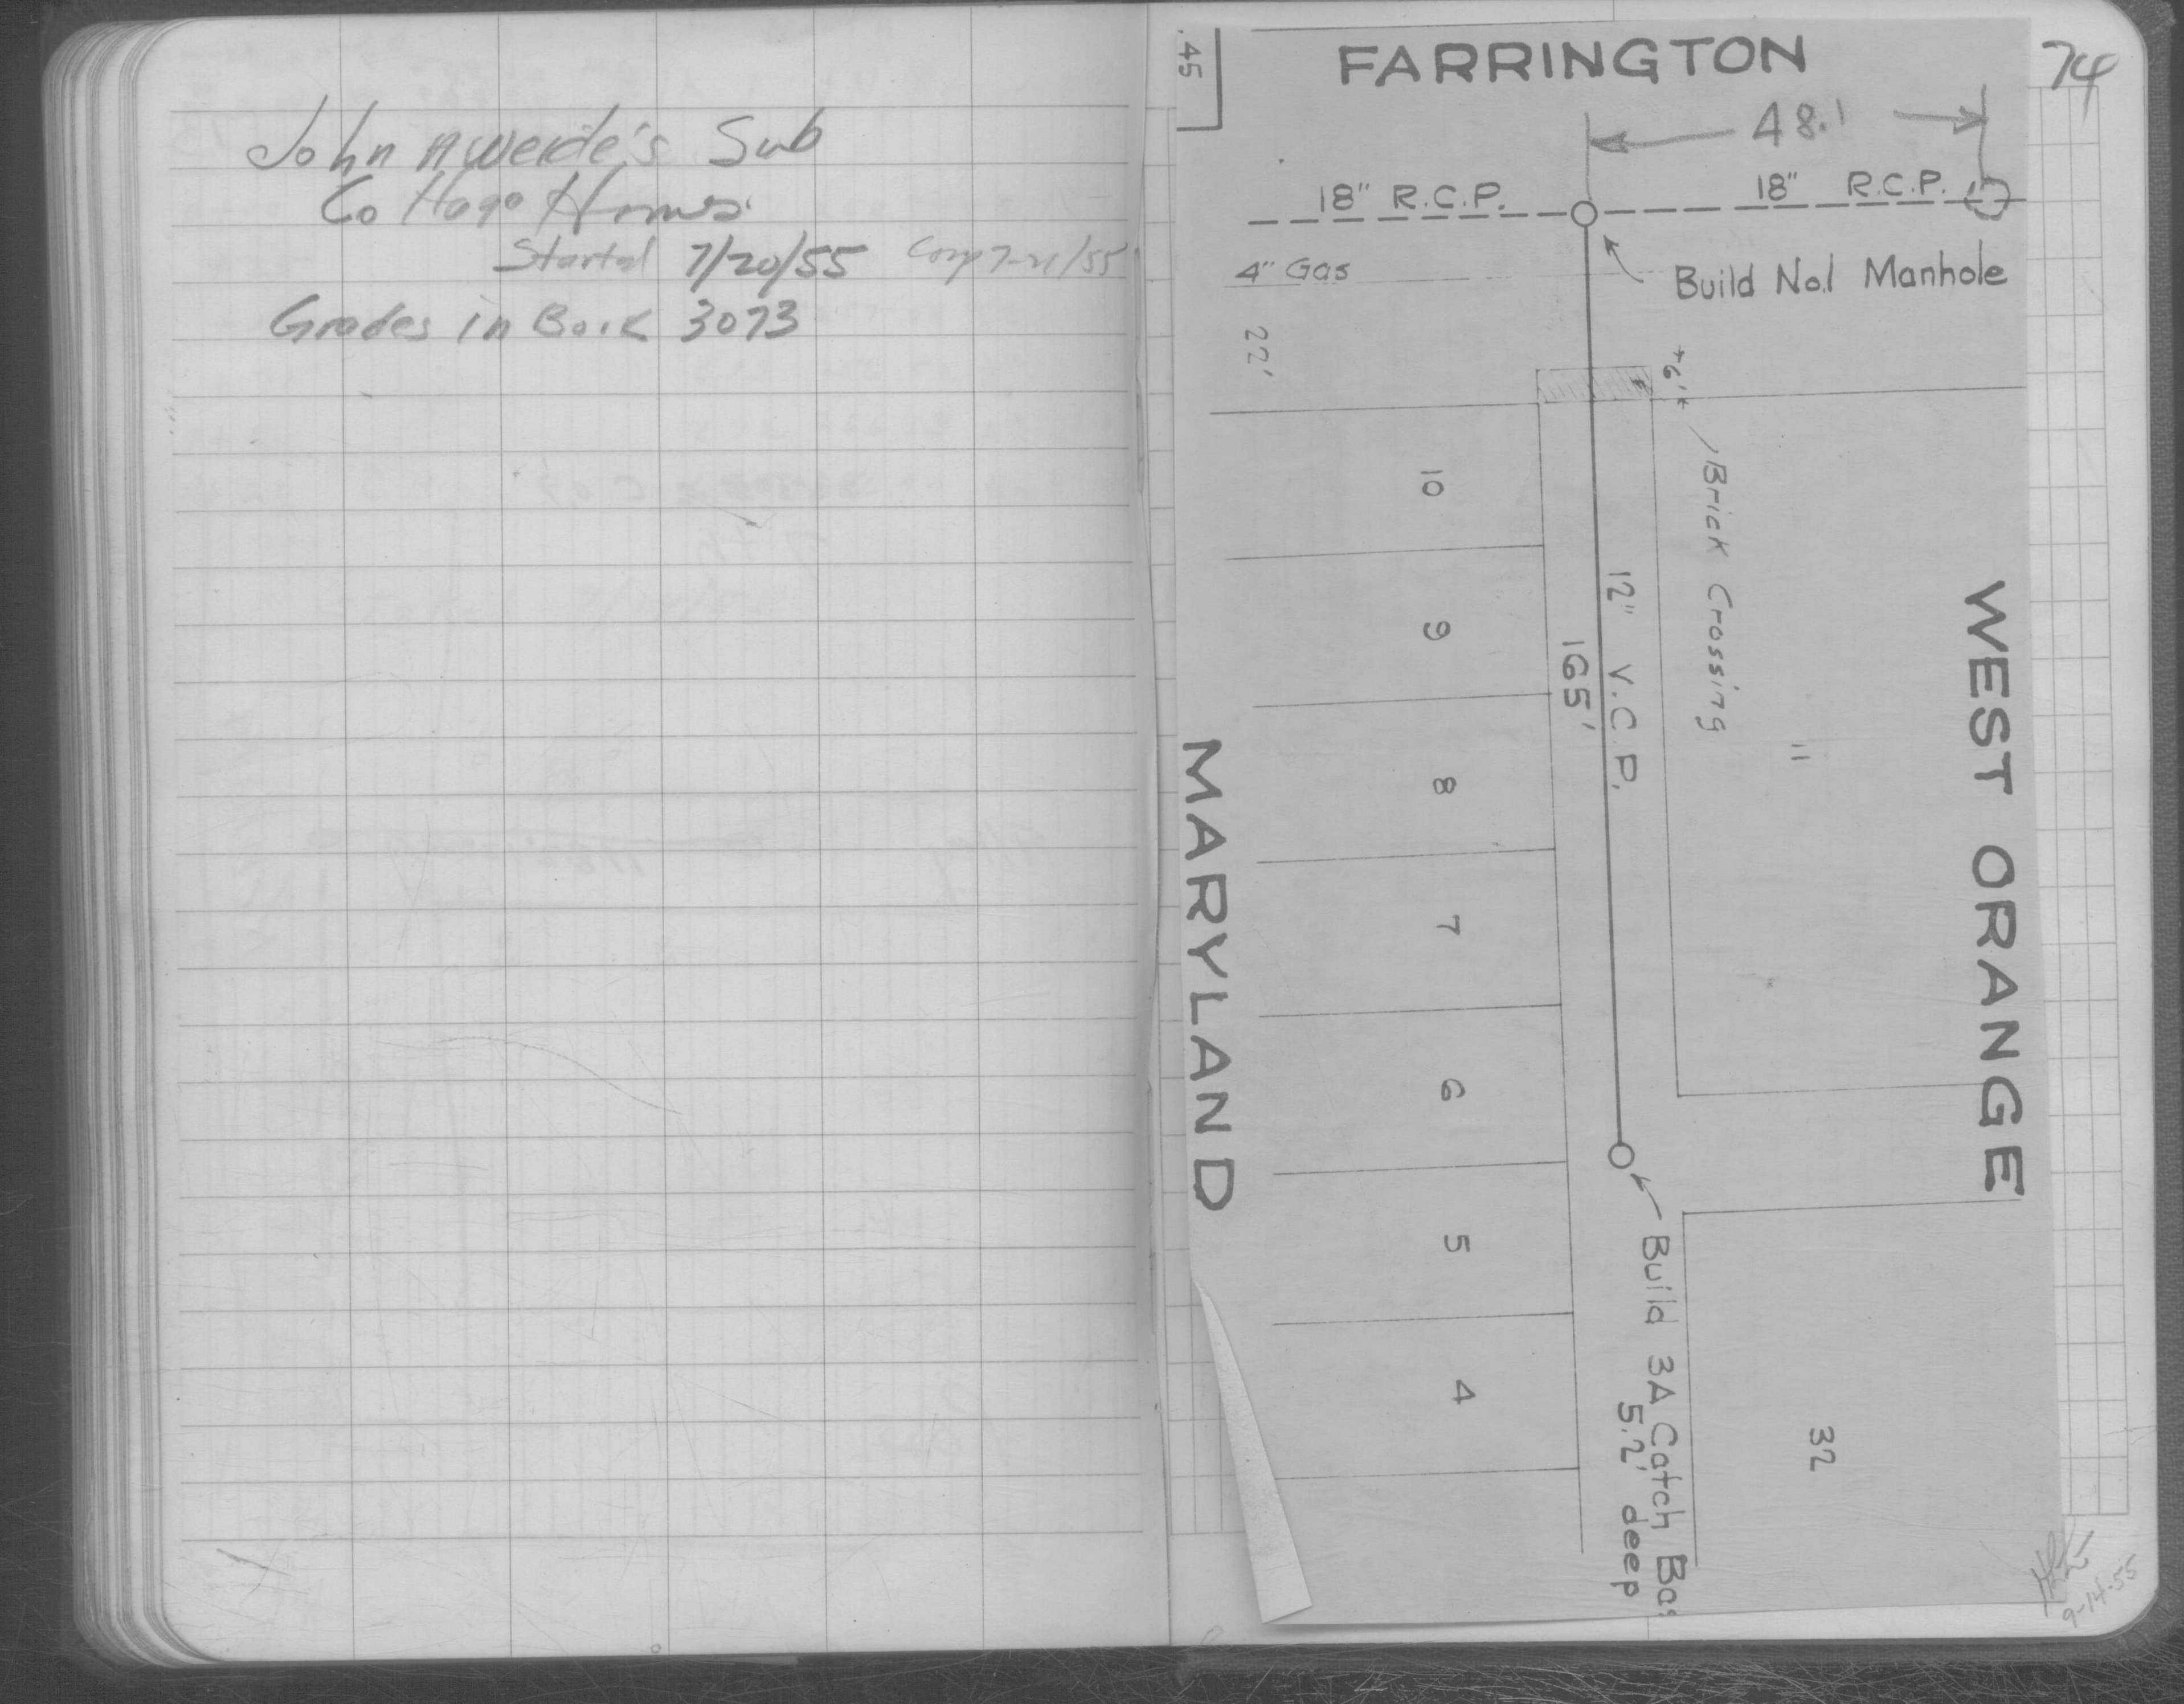 John Aweide's Sub
Cottage Homes
Started 7/20/55 Comp 7-21/55
Grades in Book 3073
74
.45
FARRINGTON
48.'
18" R.C.P.
18" R.C.P.
4" Gas
Build No.1 Manhole
22'
6'
Brick Crossing
10
9
8
7
6
5
4
12" V.C.P.
165'
11
32
MARYLAND
WEST ORANGE
Build 3A Catch Bas
5.2' deep
9-14-55